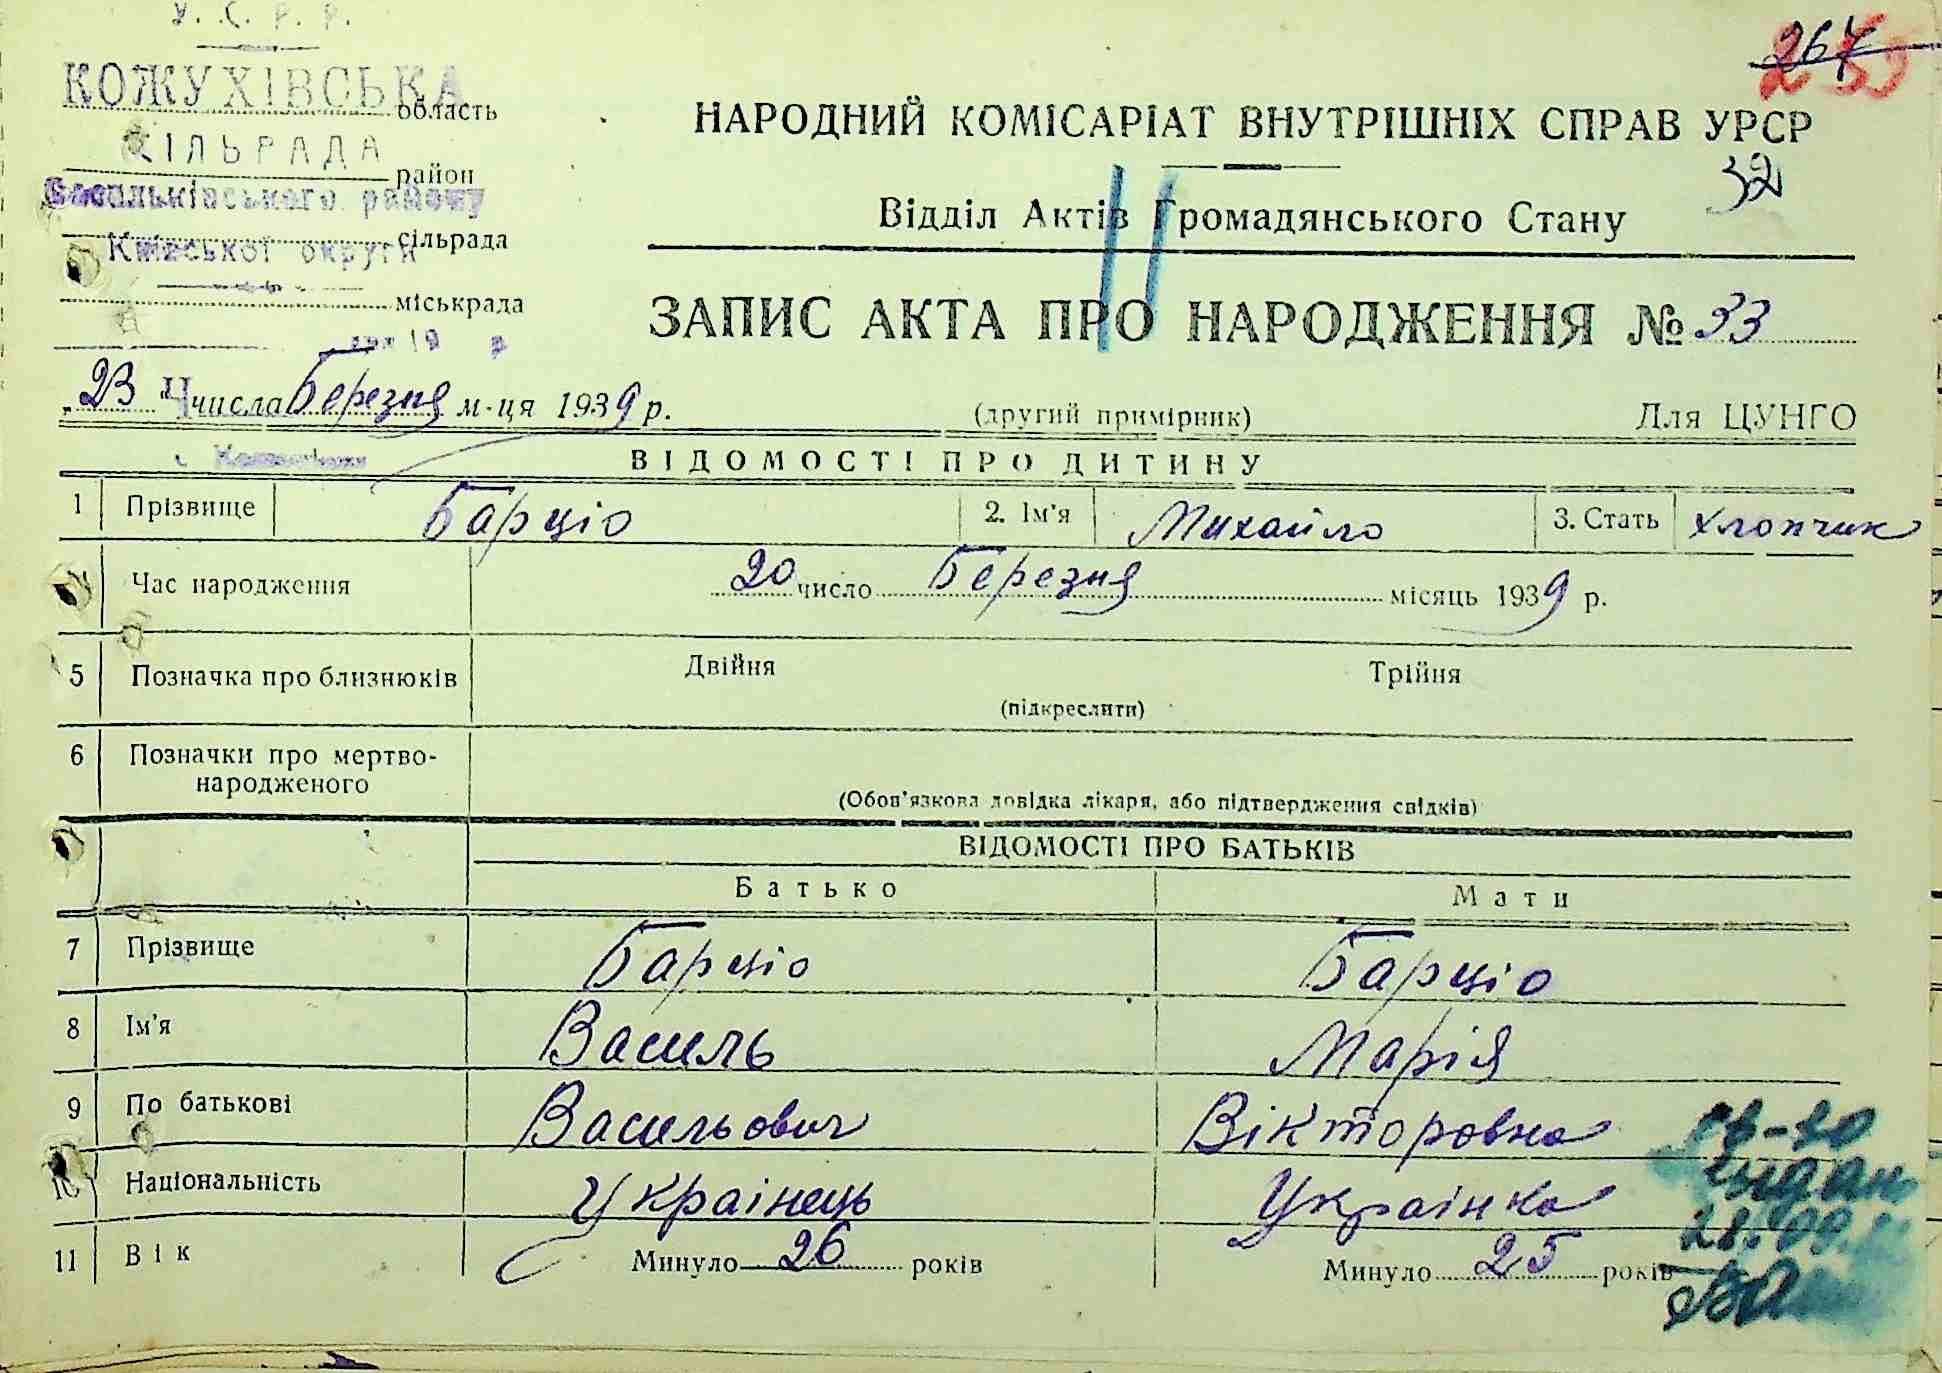 У. С. Р. Р.
КОЖУХІВСЬКА область
СІЛЬРАДА район
Васильківського району
Київської округи сільрада
міськрада
267
32
НАРОДНИЙ КОМІСАРІАТ ВНУТРІШНІХ СПРАВ УРСР
Відділ Актів Громадянського Стану
ЗАПИС АКТА ПРО НАРОДЖЕННЯ № 33
23 числа Березня м-ця 1939 р. (другий примірник) Для ЦУНГО
ВІДОМОСТІ ПРО ДИТИНУ
1 Прізвище Барціо 2. Ім'я Михайло 3. Стать хлопчик
Час народження 20 число Березня місяць 1939 р.
5 Позначка про близнюків Двійня Трійня
(підкреслити)
6 Позначки про мертво-
народженого
(Обов'язкова довідка лікаря, або підтвердження свідків)
ВІДОМОСТІ ПРО БАТЬКІВ
Батько Мати
7 Прізвище Барціо Барціо
8 Ім'я Василь Марія
9 По батькові Васильович Вікторовна
10 Національність Українець Українка
11 Вік Минуло 26 років Минуло 25 років